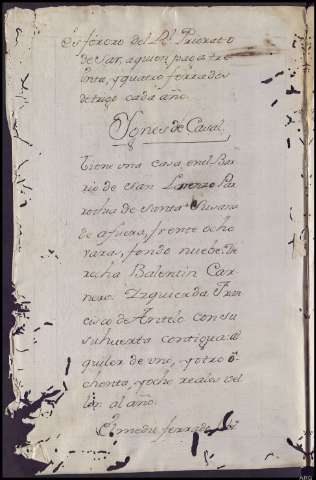 es foroso del Rl. Priorato
de Sar, aquien paga tre
inta, y quatro ferrados
de trigo cada año.
Ygnes de Casal
Tiene una casa en el Bar
rio de San Lorenzo Par
rochia de Santa Susana
de afuera, frente ocho
varas, fondo nuebe. De
recha Balentin Car
nero. Izquierda Fran
cisco de Antelo con su
su huerta contigua: al
quiler de uno, y otro o
chenta, y ocho reales ve
llon al año.
medio ferrado